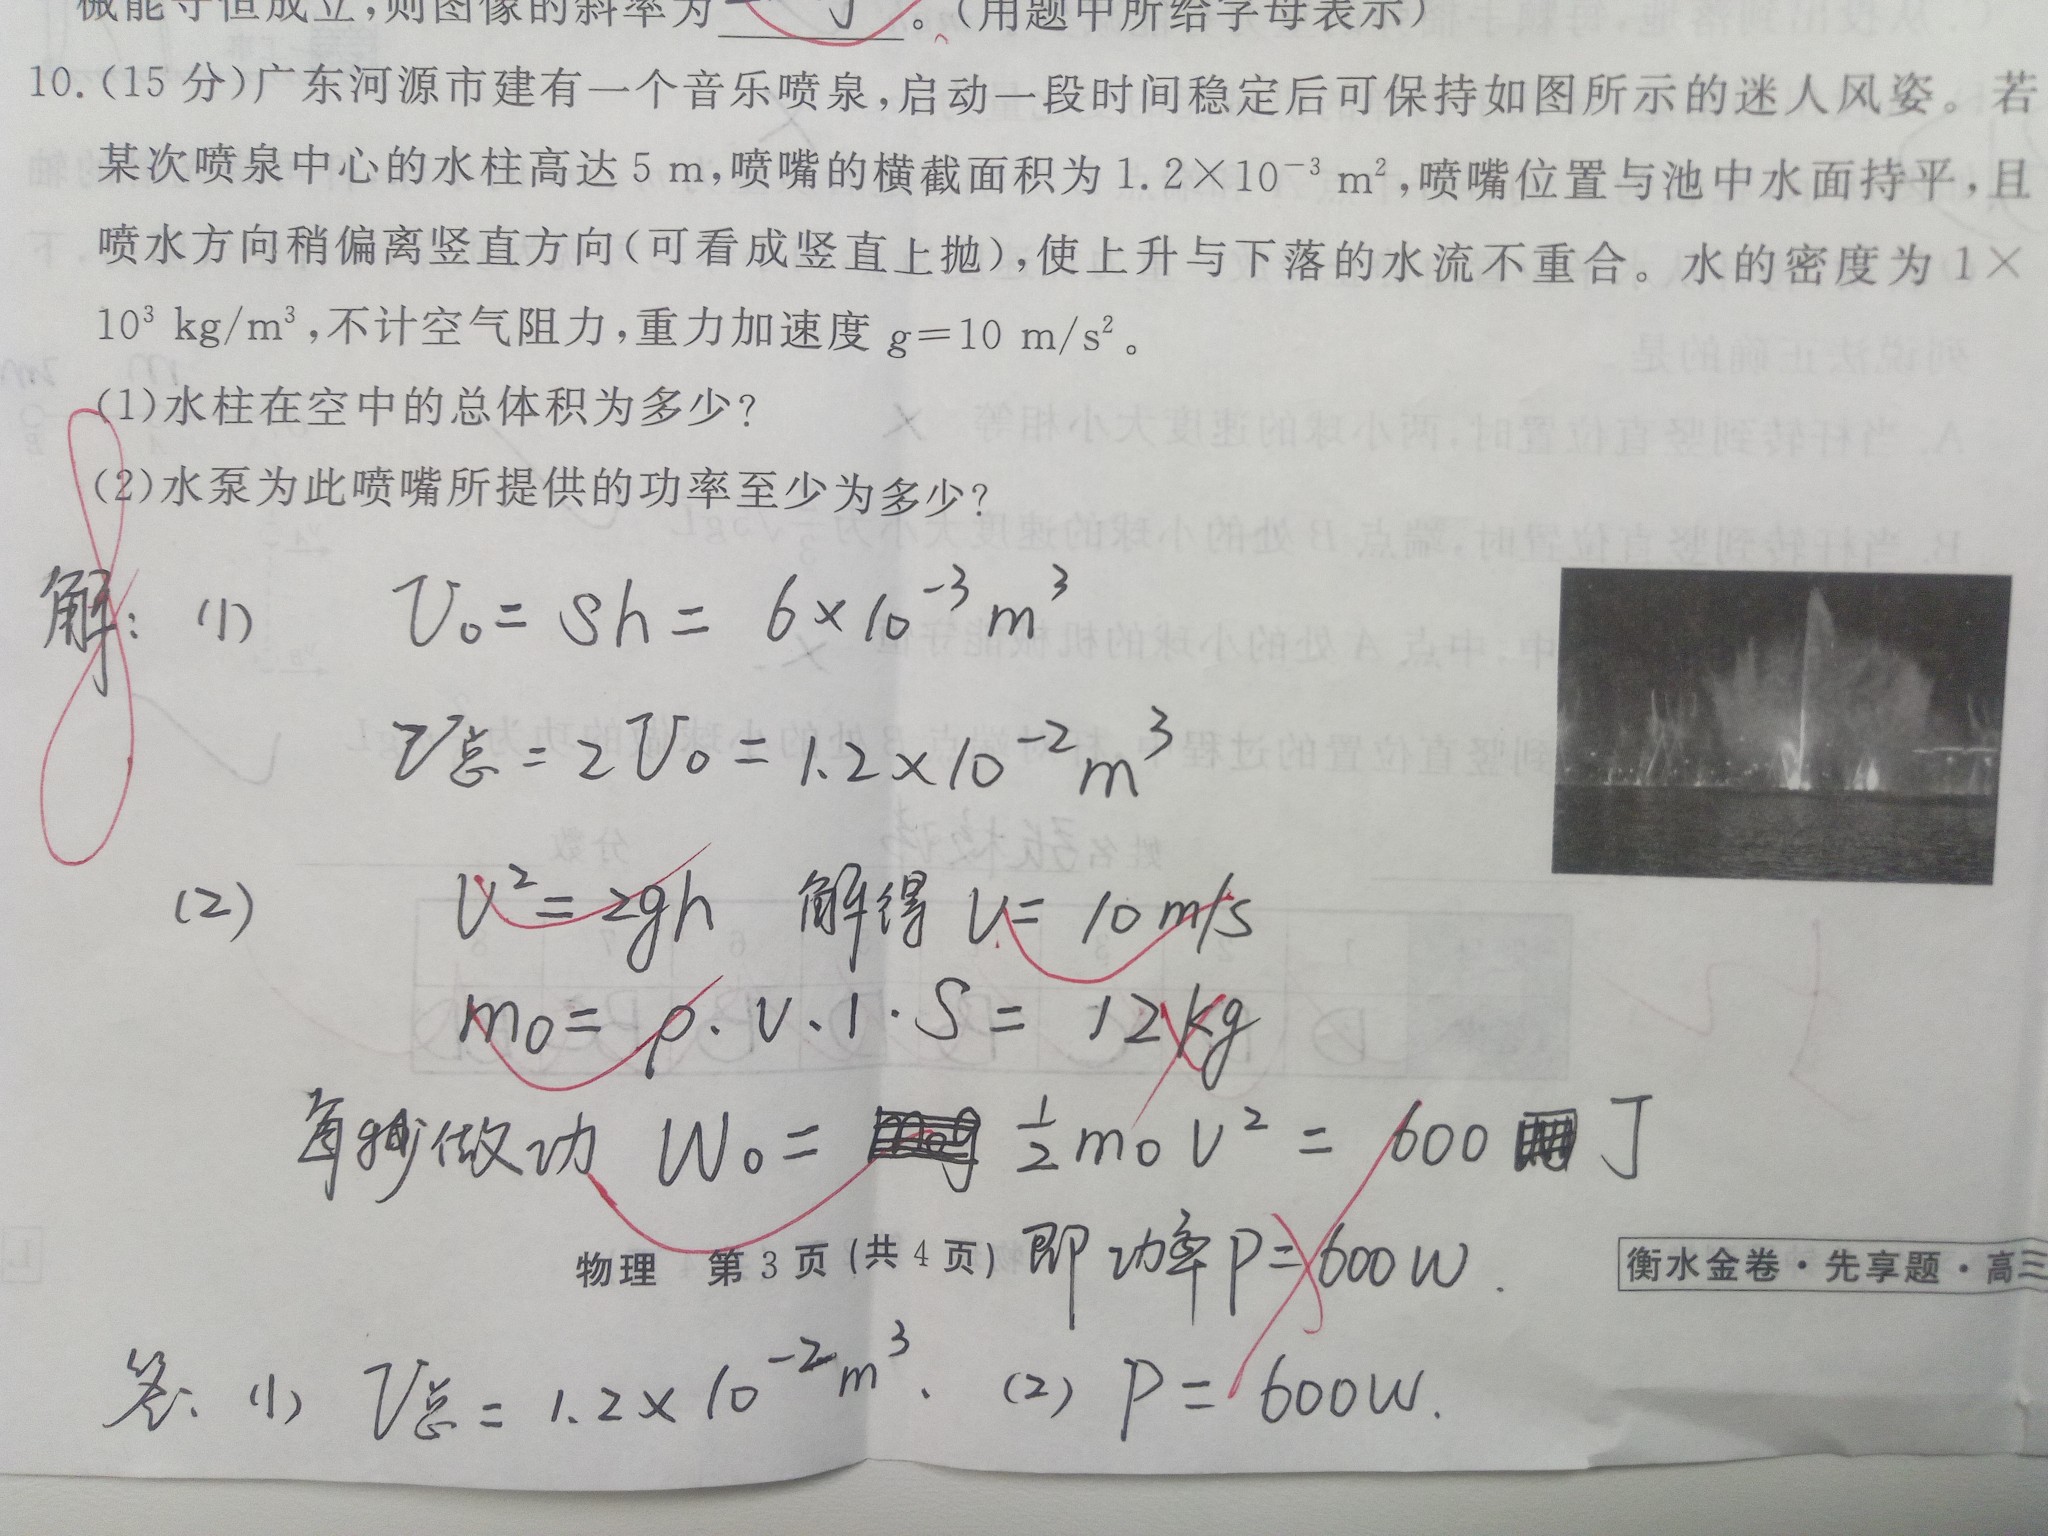 械能守恒成立,则图像的斜率为 。(用题中所给字母表示)
10.(15 分)广东河源市建有一个音乐喷泉,启动一段时间稳定后可保持如图所示的迷人风姿。若
某次喷泉中心的水柱高达 5 m,喷嘴的横截面积为 1.2×10⁻³ m²,喷嘴位置与池中水面持平,且
喷水方向稍偏离竖直方向(可看成竖直上抛),使上升与下落的水流不重合。水的密度为 1×
10³ kg/m³,不计空气阻力,重力加速度 g=10 m/s²。
(1)水柱在空中的总体积为多少?
(2)水泵为此喷嘴所提供的功率至少为多少?
解: (1) V₀ = Sh = 6×10⁻³ m³
V总 = 2V₀ = 1.2×10⁻² m³
(2) v² = 2gh 解得 v = 10 m/s
m₀ = ρ·v·1·S = 12 kg
每秒做功 W₀ = ½m₀v² = 600 J
即功率P=600W.
物理 第 3 页(共 4 页)
衡水金卷·先享题·高三
答: (1) V总 = 1.2×10⁻² m³. (2) P = 600W.